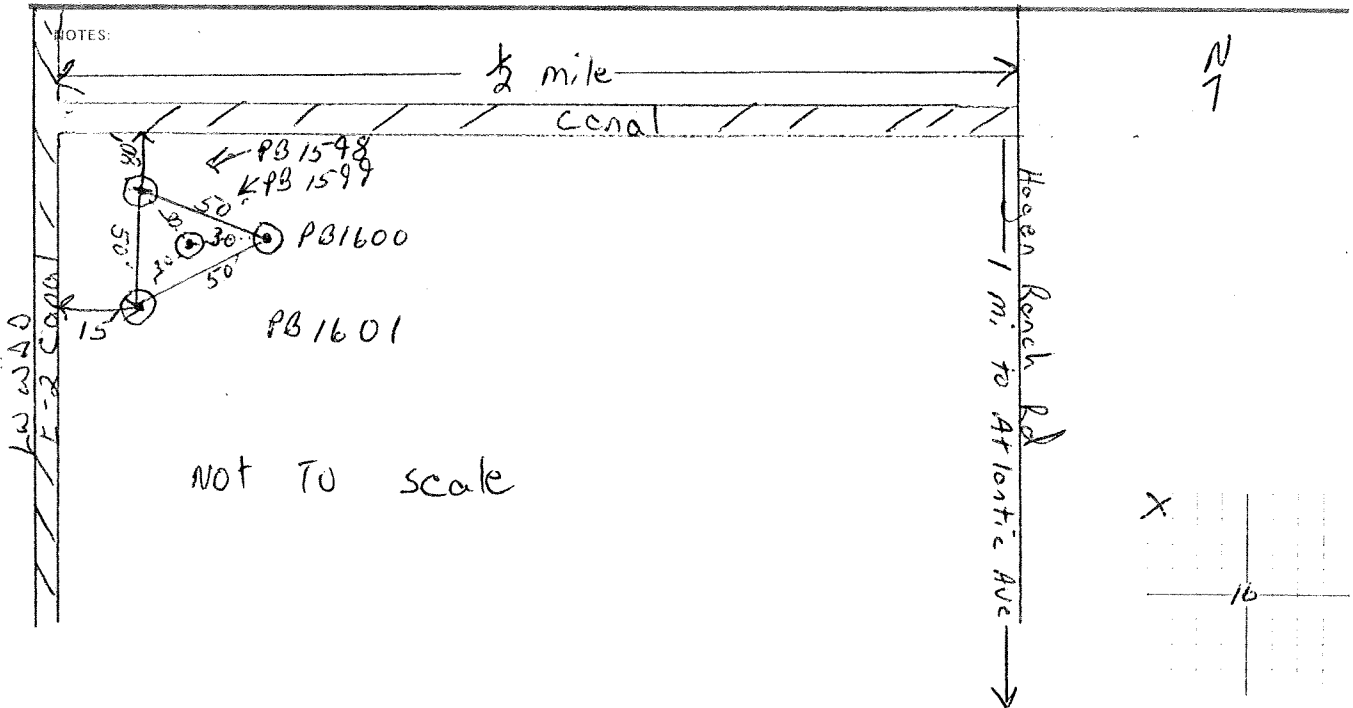 NOTES:
½ mile
N
Canal
80'
PB 1598
PB 1599
50'
30'
30'
PB1600
50'
30'
50'
15'
PB1601
LWWDD
E-2 Canal
Hagen Ranch Rd
1 mi to Atlantic Ave
Not To scale
X
16